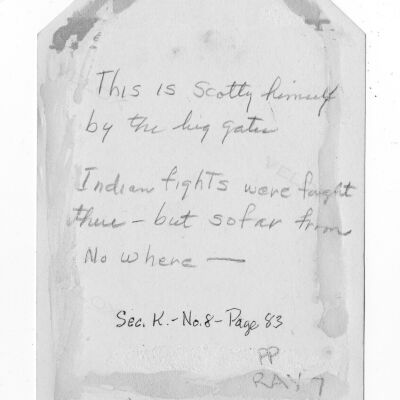 This is Scotty himself
by the big gates
Indian fights were fought
there - but so far from
No where —
Sec. K. - No. 8 - Page 83
PP
RAY 7